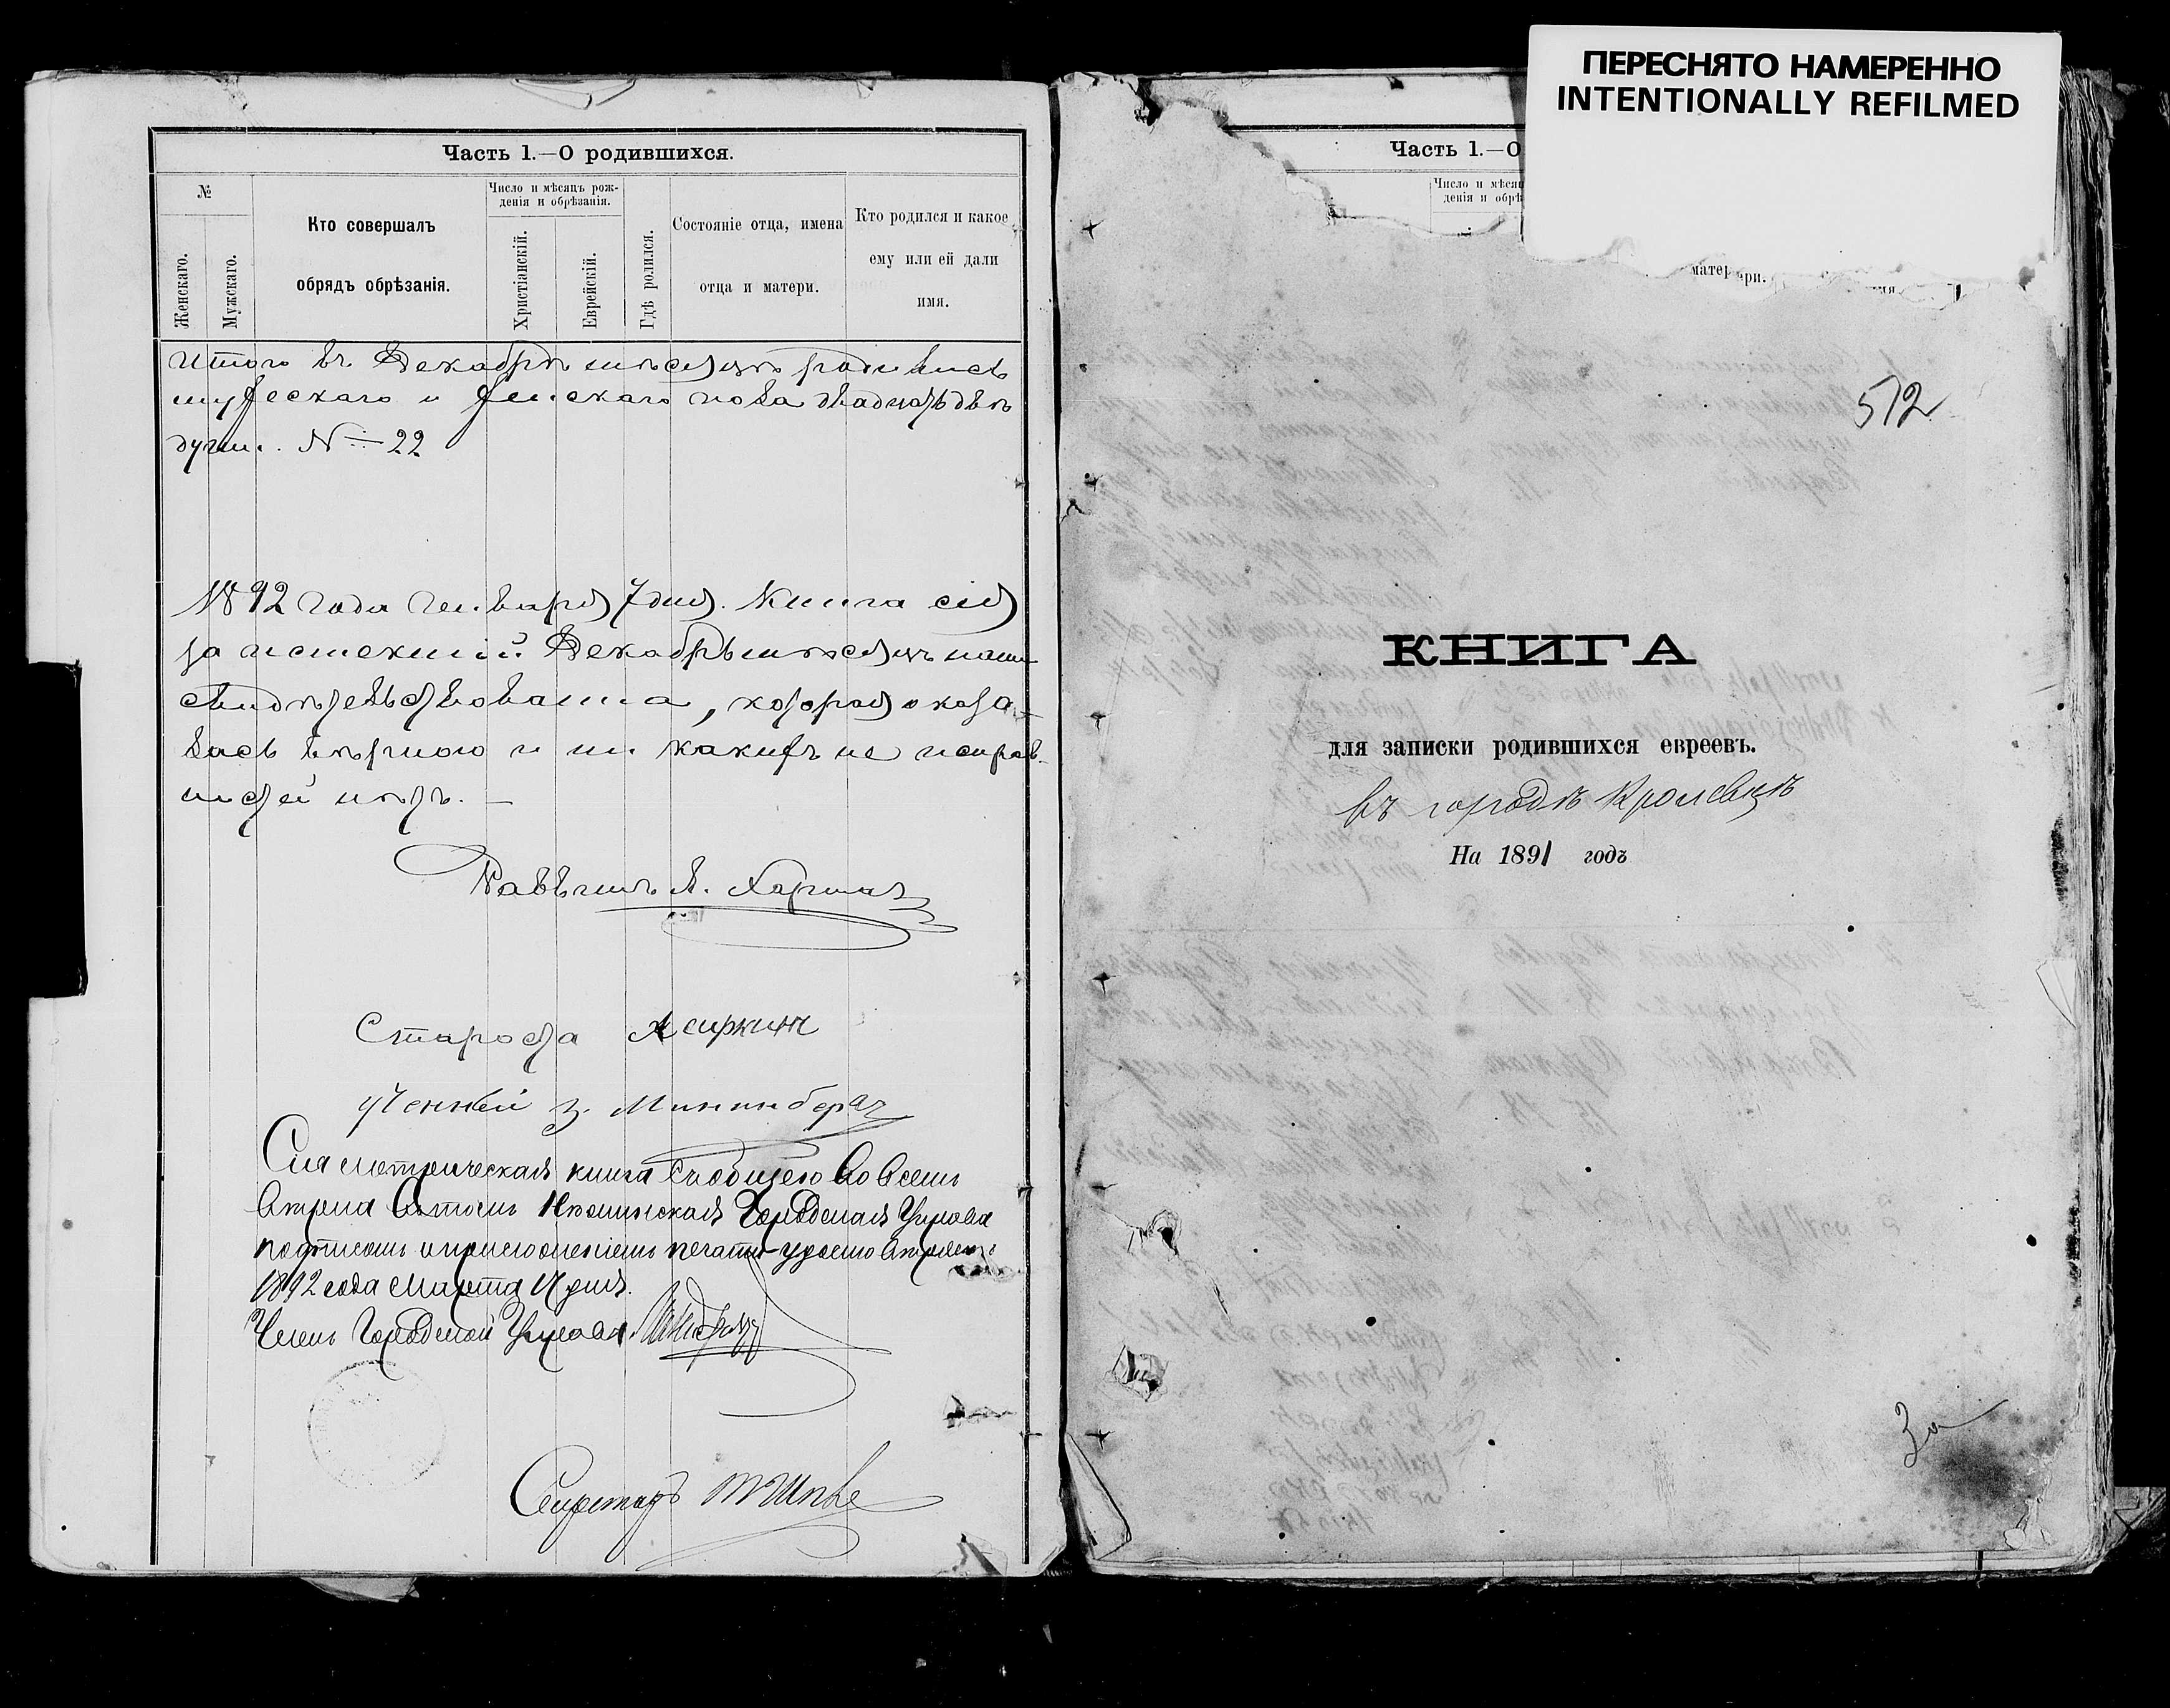 Часть 1.—О родившихся.
№
Женскаго.
Мужскаго.
Кто совершалъ
обрядъ обрѣзанія.
Число и мѣсяцъ рож-
денія и обрѣзанія.
Христіанскій.
Еврейскій.
Гдѣ родился.
Состояніе отца, имена
отца и матери.
Кто родился и какое
ему или ей дали
имя.
Итого въ Декабрѣ мѣсяцѣ родились
мужескаго и женскаго пола двадцать двѣ
души. № 22
1892 года Генваря 7 дня. Книга сія
за истекшій Декабрь мѣсяцъ нами
свидѣтельствована, которая оказа-
лась вѣрною и ни какихъ не исправ-
ностей нѣтъ.
Раввинъ
Староста
Ученный З.
Сія метрическая книга съ общею во всемъ
Нѣжинская Городская Управа
подписомъ и приложеніемъ печати
1892 года Марта дня.
Членъ Городской Управы
Секретарь
ПЕРЕСНЯТО НАМЕРЕННО
INTENTIONALLY REFILMED
Часть 1.—О
Число и мѣсяц
денія и обрѣ
матери.
512
КНИГА
для записки родившихся евреевъ.
въ городѣ Кролевцѣ
На 1891 годъ
За